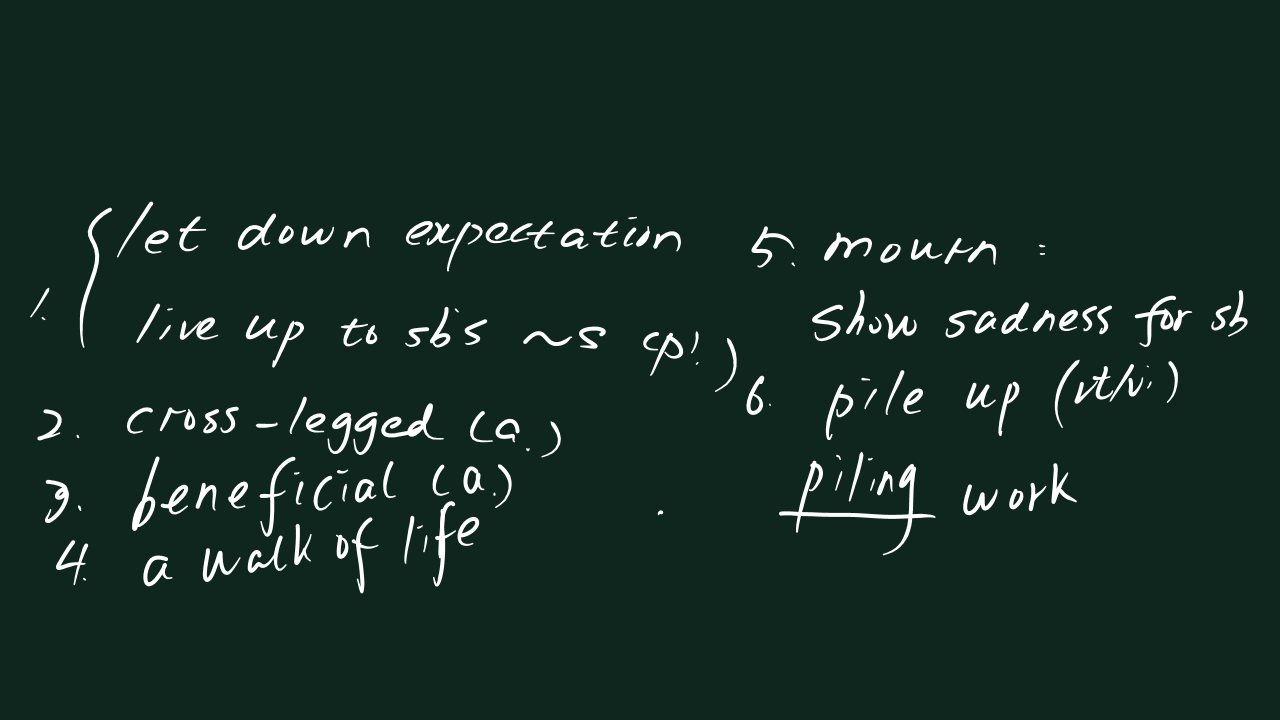 1. { let down expectation
live up to sb's ~s (p!)
2. cross-legged (a.)
3. beneficial (a.)
4. a walk of life
5. mourn :
show sadness for sb
6. pile up (vt/vi)
piling work